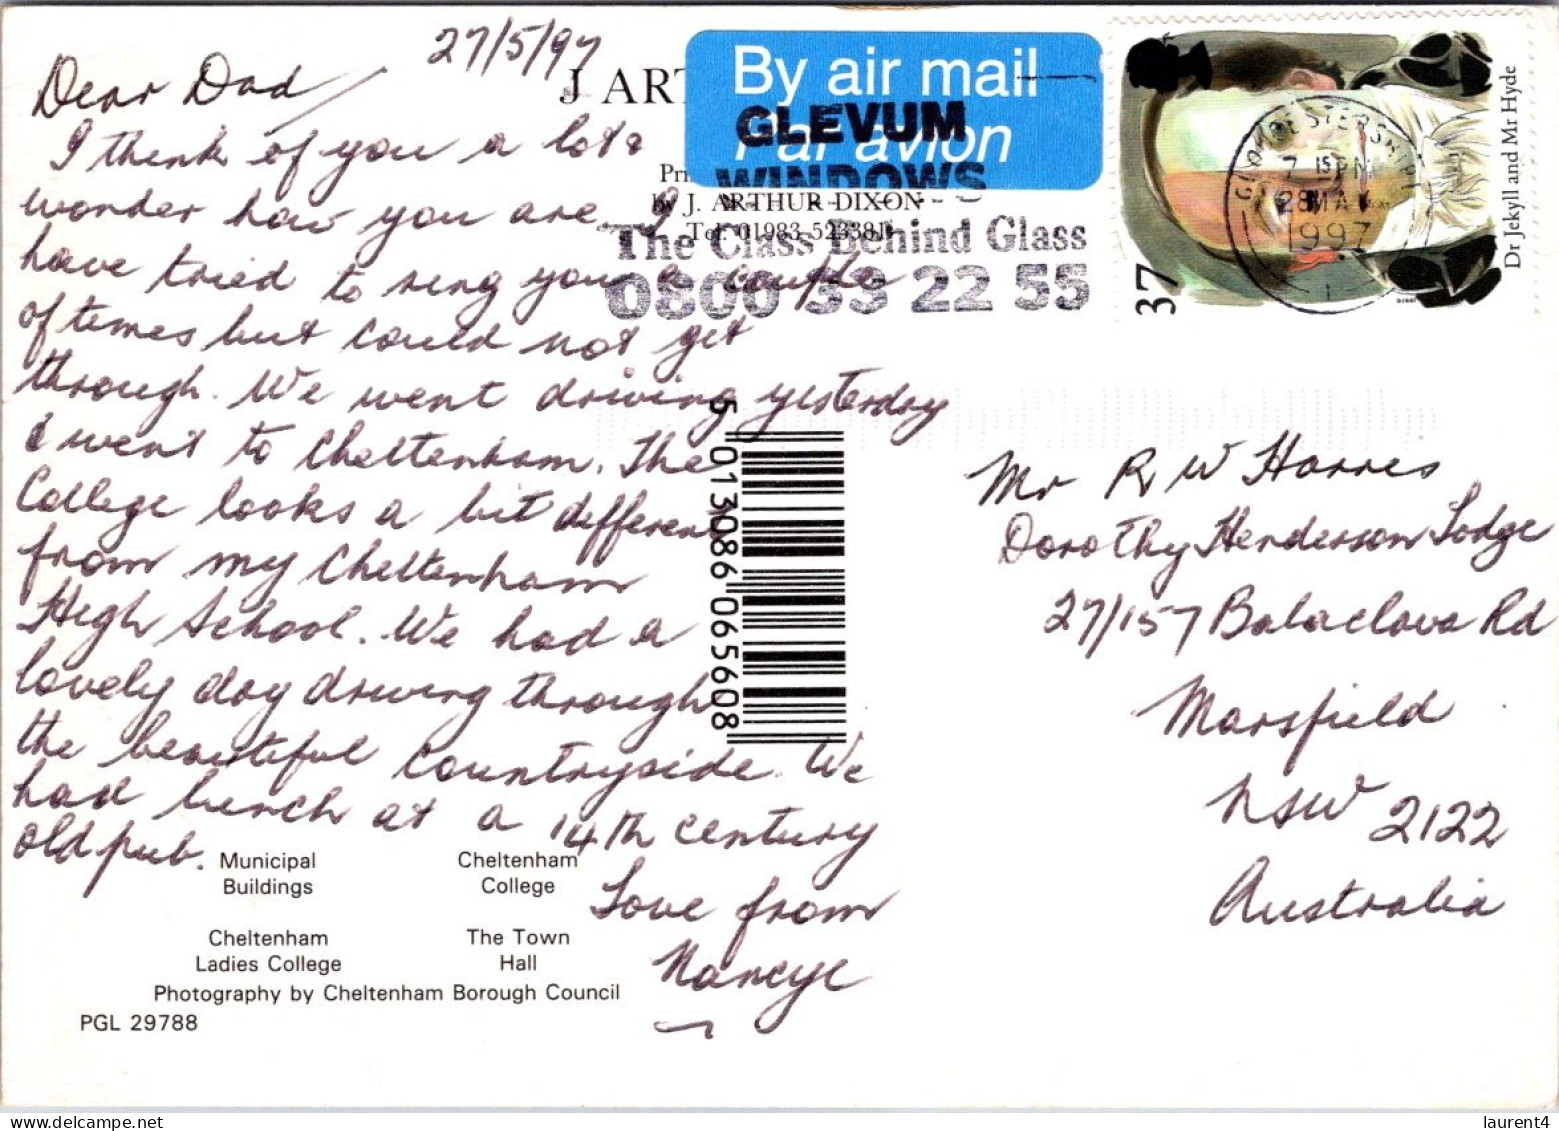 27/5/97
Dear Dad
I think of you a lot &
wonder how you are. I
have tried to ring you a couple
of times but could not get
through. We went driving yesterday
& went to Cheltenham. The
College looks a bit different
from my Cheltenham
High School. We had a
lovely day driving through
the beautiful countryside. We
had lunch at a 14th century
old pub.
Love from
Nancye
J ART
By air mail
Par avion
GLEVUM
WINDOWS
Prin
by J. ARTHUR DIXON
Tel: 01983 523381
The Class Behind Glass
0800 53 22 55
GLOUCESTERSHIRE
7 15 PM
28 MAY
1997
37
Dr Jekyll and Mr Hyde
5 013086 065608
Mr R W Harris
Dorothy Henderson Lodge
27/157 Balaclava Rd
Marsfield
NSW 2122
Australia
Municipal
Buildings
Cheltenham
College
Cheltenham
Ladies College
The Town
Hall
Photography by Cheltenham Borough Council
PGL 29788
laurent4